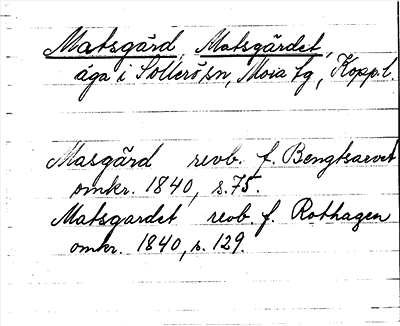 Matsgård, Matsgårdet,
äga i Sollerö sn, Mora tg, Kopp.l.
Masgård revb. f. Bengtsarvet
omkr. 1840, s. 75.
Matsgardet revb. f. Rothagen
omkr. 1840, s. 129.